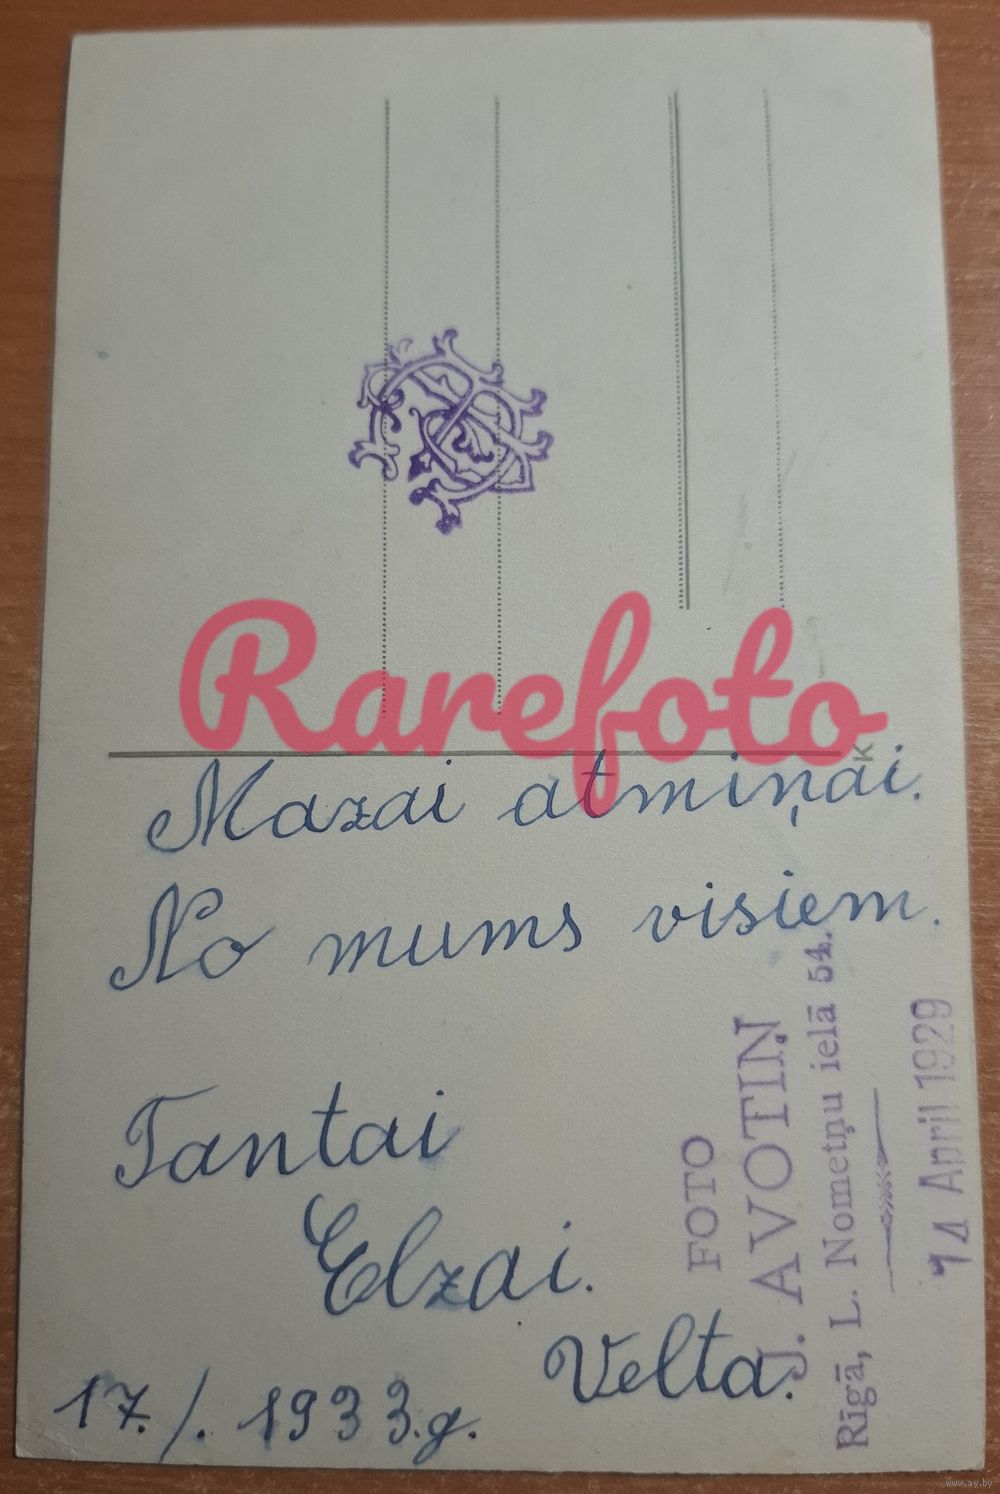 Rarefoto
K
Mazai atmiņai.
No mums visiem.
Tantai
Elzai.
Velta.
17./. 1933.g.
FOTO
J. AVOTIN
Rīgā, L. Nometņu ielā 54.
14 April 1929
www.ay.by